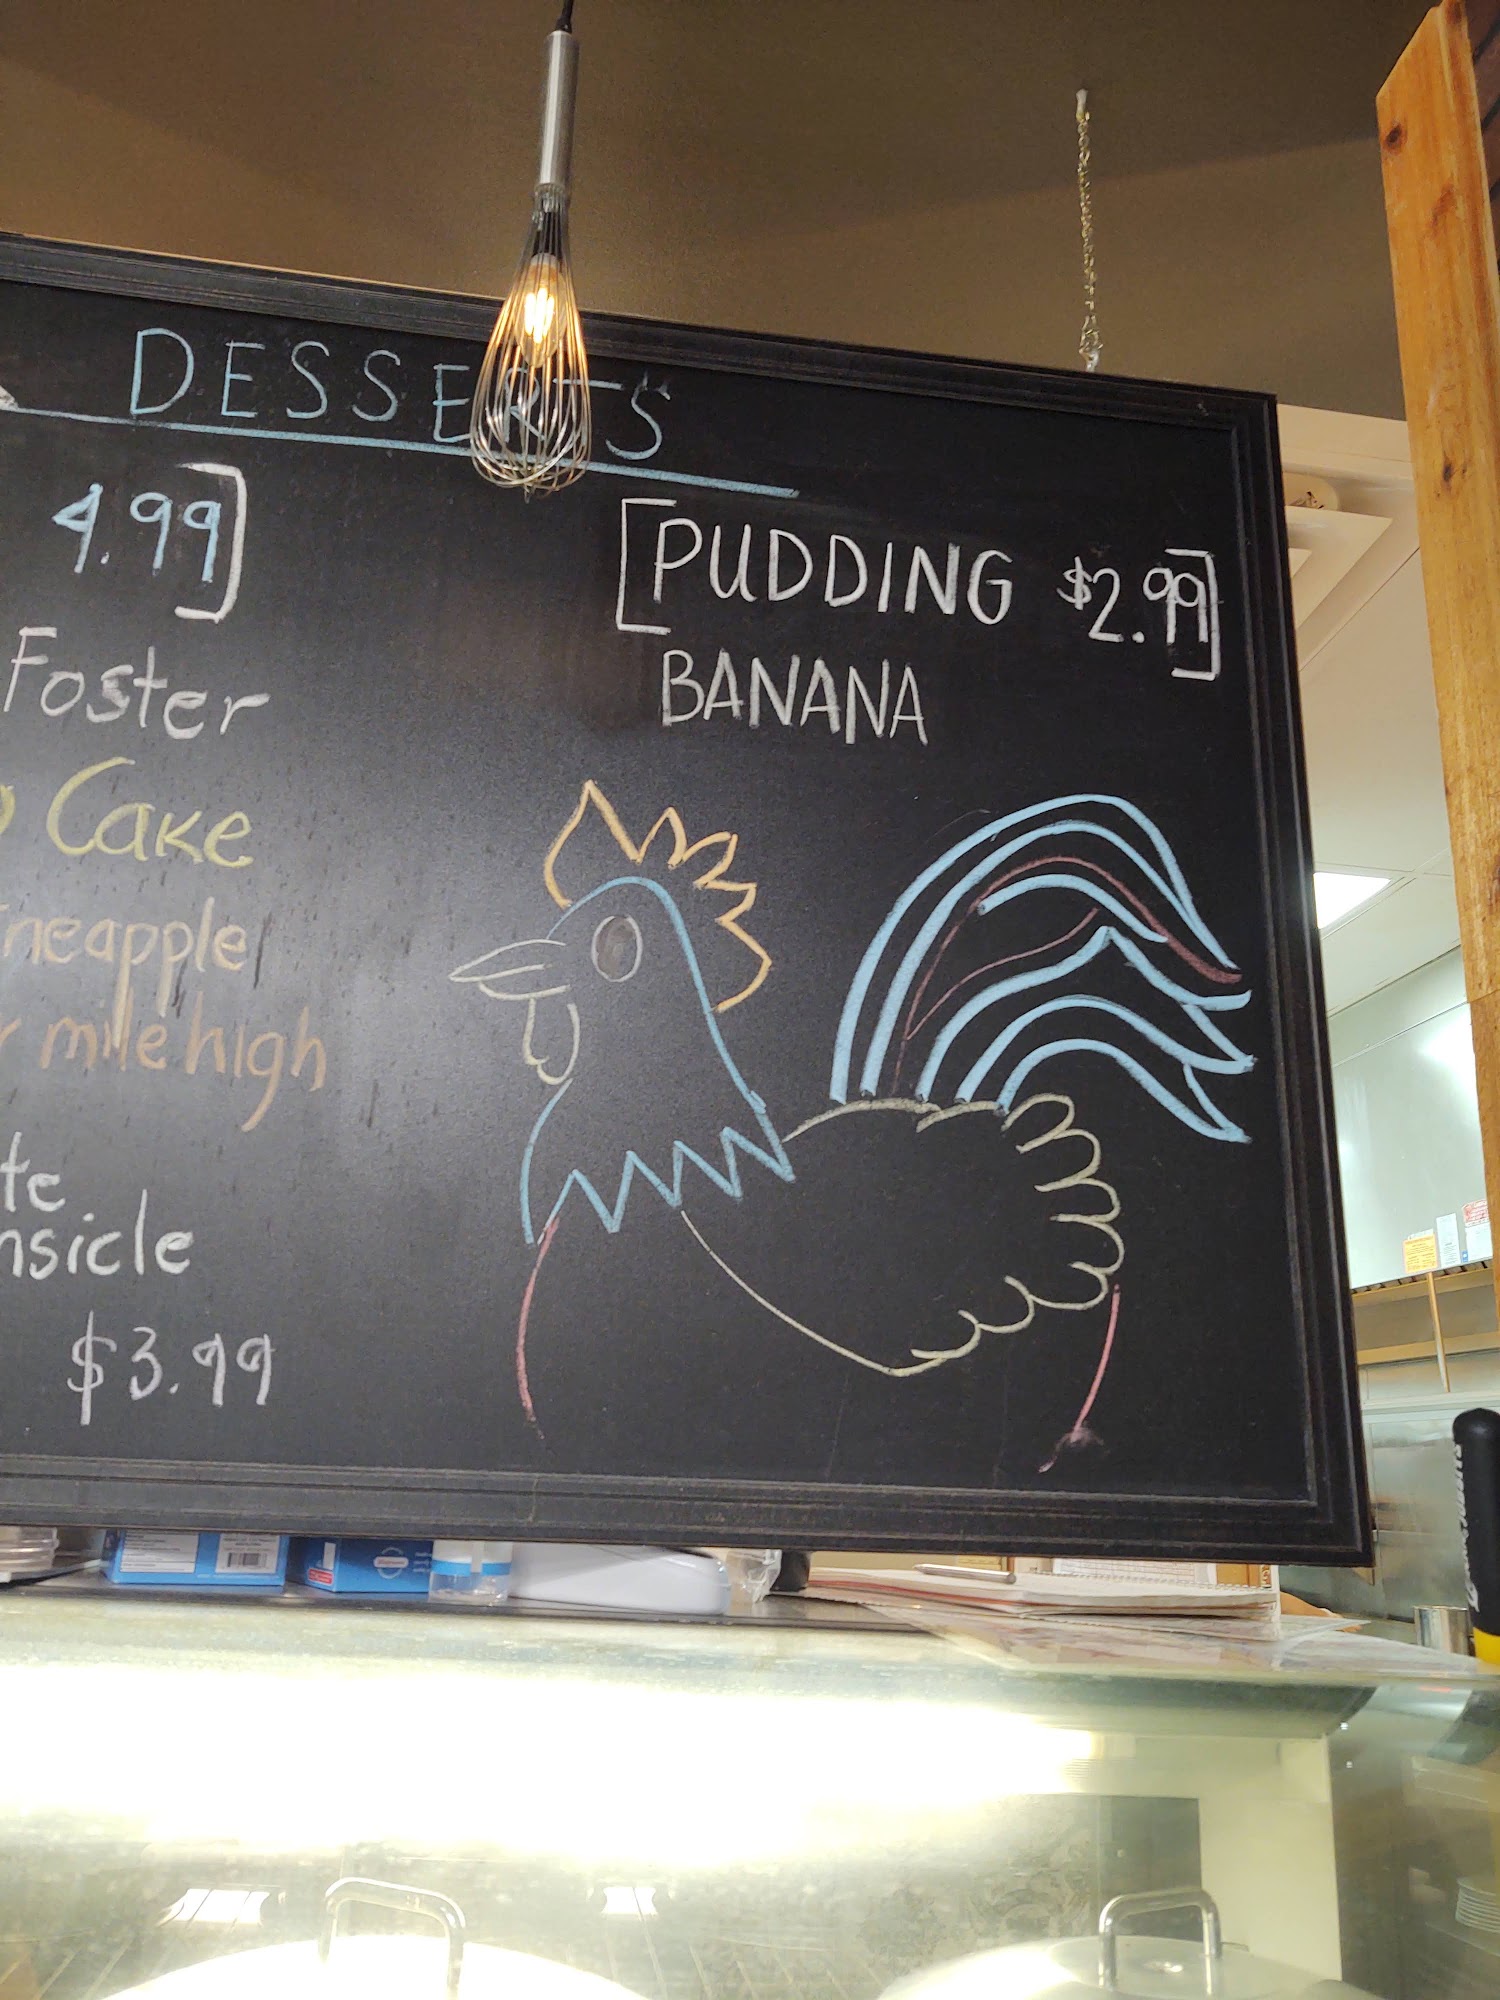 DESSERTS
4.99]
Foster
Cake
neapple
mile high
te
nsicle
$3.99
[PUDDING $2.99]
BANANA